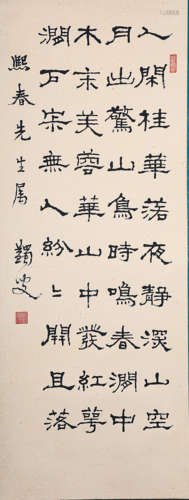 人閑桂華落夜靜溪山空
月出驚山鳥時鳴春澗中
木末芙蓉華山中發紅萼
澗戶寂無人紛〻開且落
熙春先生属 蠲叟